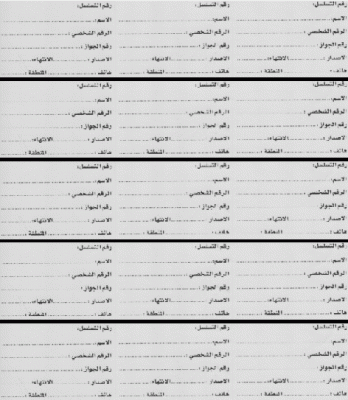 رقم التسلسل: رقم التسلسل: رقم التسلسل:
الاسم: الاسم: الاسم:
الرقم الشخصي: الرقم الشخصي: الرقم الشخصي:
رقم الجواز: رقم الجواز: رقم الجواز:
الاصدار: الانتهاء: الاصدار: الانتهاء: الاصدار: الانتهاء:
هاتف: المنطقة: هاتف: المنطقة: هاتف: المنطقة:
رقم التسلسل: رقم التسلسل: رقم التسلسل:
الاسم: الاسم: الاسم:
الرقم الشخصي: الرقم الشخصي: الرقم الشخصي:
رقم الجواز: رقم الجواز: رقم الجواز:
الاصدار: الانتهاء: الاصدار: الانتهاء: الاصدار: الانتهاء:
هاتف: المنطقة: هاتف: المنطقة: هاتف: المنطقة:
رقم التسلسل: رقم التسلسل: رقم التسلسل:
الاسم: الاسم: الاسم:
الرقم الشخصي: الرقم الشخصي: الرقم الشخصي:
رقم الجواز: رقم الجواز: رقم الجواز:
الاصدار: الانتهاء: الاصدار: الانتهاء: الاصدار: الانتهاء:
هاتف: المنطقة: هاتف: المنطقة: هاتف: المنطقة:
رقم التسلسل: رقم التسلسل: رقم التسلسل:
الاسم: الاسم: الاسم:
الرقم الشخصي: الرقم الشخصي: الرقم الشخصي:
رقم الجواز: رقم الجواز: رقم الجواز:
الاصدار: الانتهاء: الاصدار: الانتهاء: الاصدار: الانتهاء:
هاتف: المنطقة: هاتف: المنطقة: هاتف: المنطقة:
رقم التسلسل: رقم التسلسل: رقم التسلسل:
الاسم: الاسم: الاسم:
الرقم الشخصي: الرقم الشخصي: الرقم الشخصي:
رقم الجواز: رقم الجواز: رقم الجواز:
الاصدار: الانتهاء: الاصدار: الانتهاء: الاصدار: الانتهاء:
هاتف: المنطقة: هاتف: المنطقة: هاتف: المنطقة: